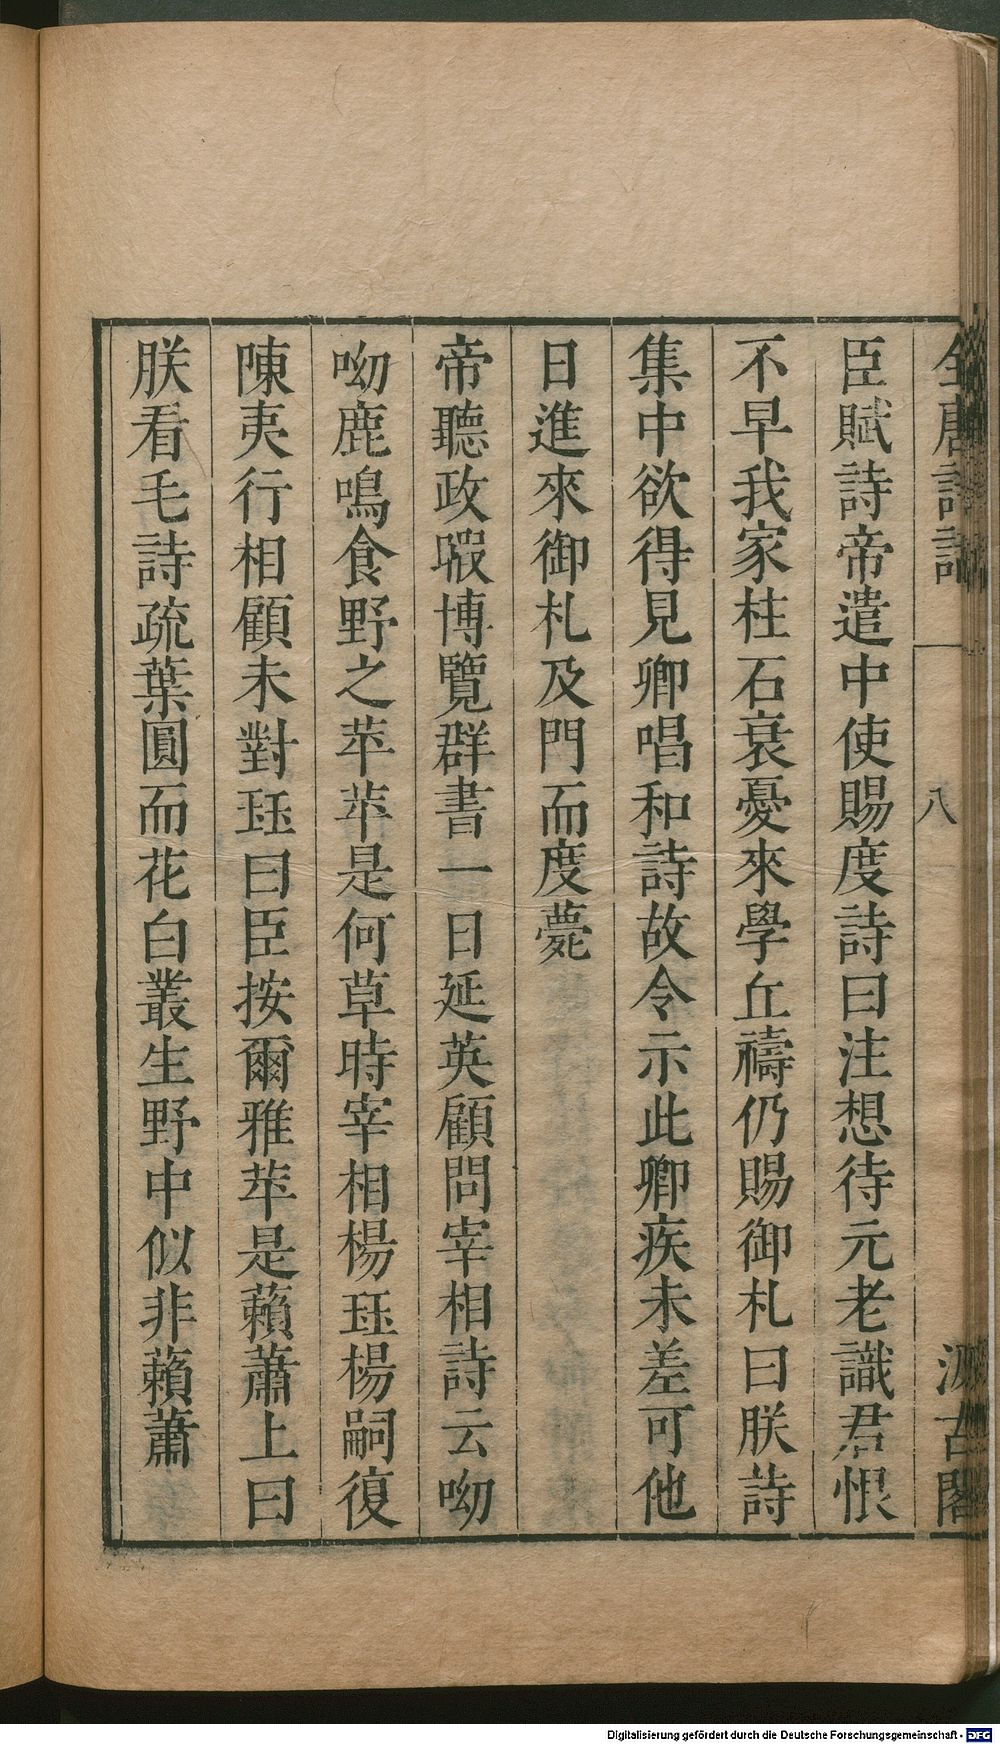 全唐詩話
八
汲古閣
臣賦詩帝遣中使賜度詩曰注想待元老識君恨
不早我家柱石衰憂來學丘禱仍賜御札曰朕詩
集中欲得見卿唱和詩故令示此卿疾未差可他
日進來御札及門而度薨
帝聽政暇博覽群書一日延英顧問宰相詩云呦
呦鹿鳴食野之苹苹是何草時宰相楊珏楊嗣復
陳夷行相顧未對珏曰臣按爾雅苹是藾蕭上曰
朕看毛詩疏葉圓而花白叢生野中似非藾蕭
Digitalisierung gefördert durch die Deutsche Forschungsgemeinschaft - DFG